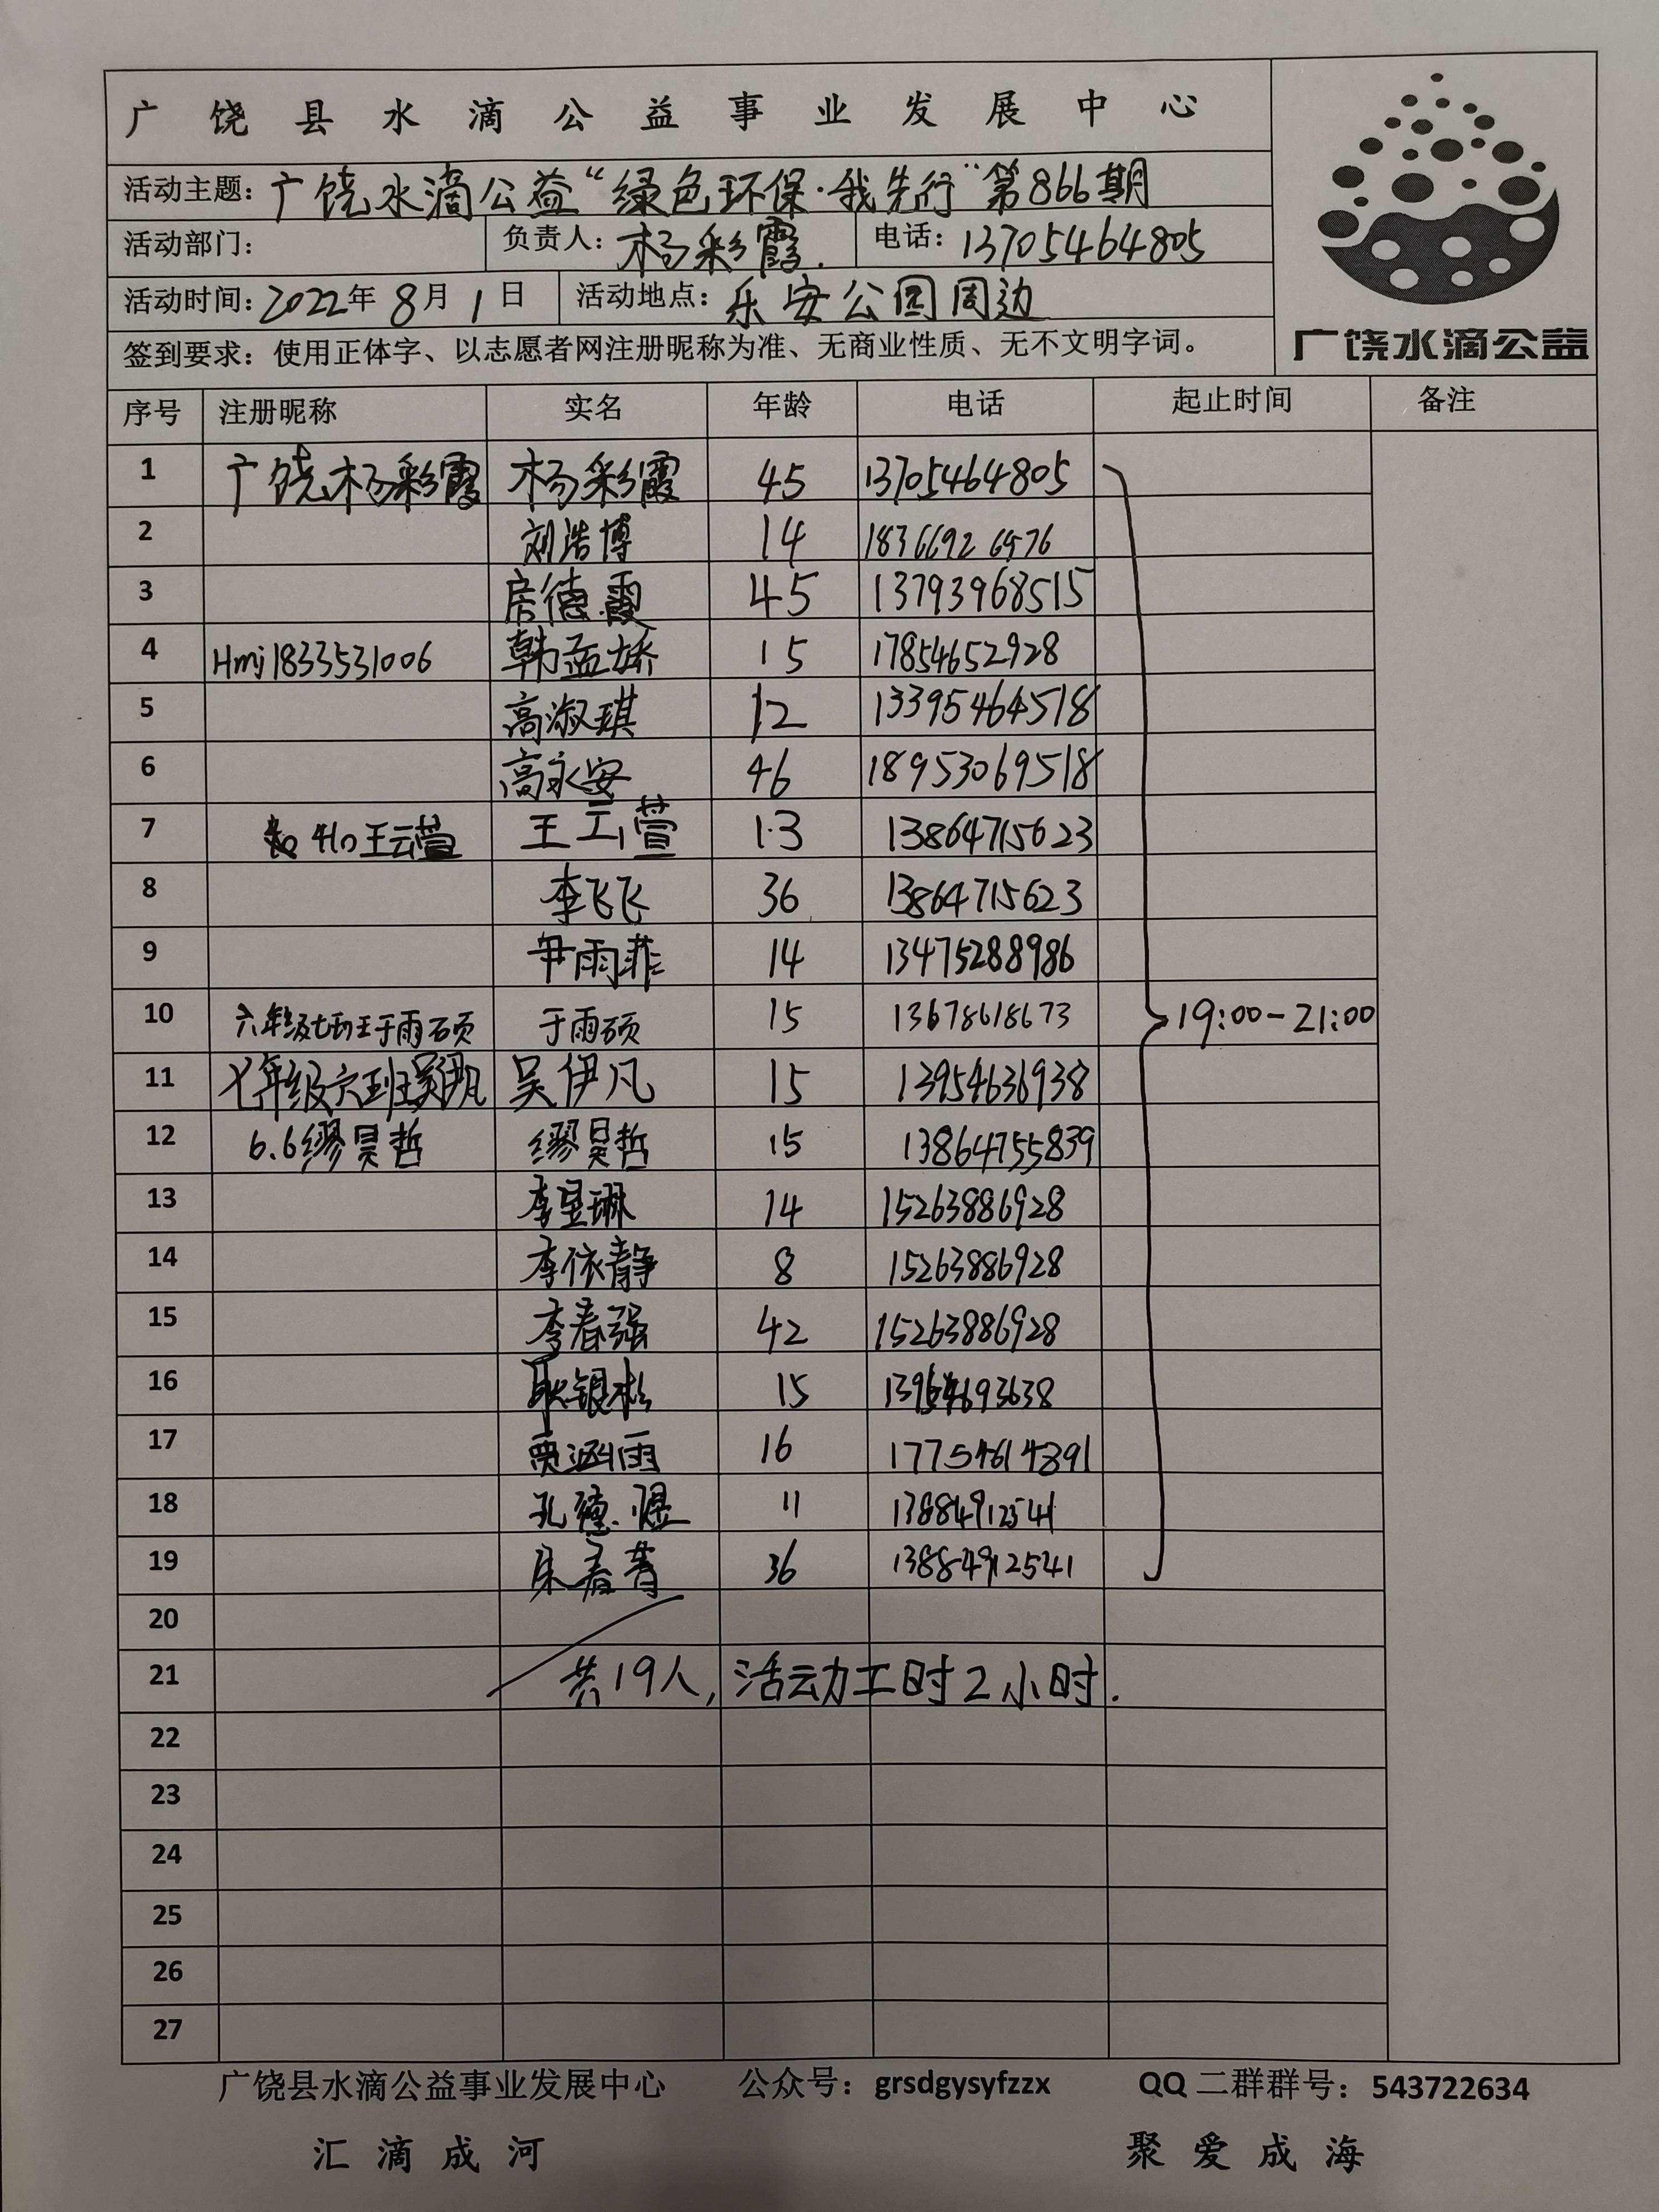 广饶县水滴公益事业发展中心
活动主题：广饶水滴公益“绿色环保·我先行”第866期
活动部门： 负责人：杨彩霞. 电话：13705464805
活动时间：2022年8月1日 活动地点：乐安公园周边
广饶水滴公益
签到要求：使用正体字、以志愿者网注册昵称为准、无商业性质、无不文明字词。
序号 注册昵称 实名 年龄 电话 起止时间 备注
1 广饶杨彩霞 杨彩霞 45 13705464805
2 刘浩博 14 18366926976
3 房德霞 45 13793968515
4 Hmj1833531006 韩孟娇 15 17854652928
5 高淑琪 12 13395464518
6 高永安 46 18953069518
7 王云萱 王云萱 13 13864715623
8 李飞飞 36 13864715623
9 尹雨菲 14 13475288986
10 六年级七班王于雨硕 于雨硕 15 13678618673 19:00-21:00
11 七年级六班吴伊凡 吴伊凡 15 13954636938
12 6.6缪昊哲 缪昊哲 15 13864755839
13 李昱琳 14 15263886928
14 李依静 8 15263886928
15 李春强 42 15263886928
16 耿银杉 15
17 贾涵雨 16 17754614391
18 孔德煜 11 13884912541
19 朱春菁 36 13884912541
20
21 共19人，活动工时2小时.
22
23
24
25
26
27
广饶县水滴公益事业发展中心 公众号：grsdgysyfzzx QQ二群群号：543722634
汇滴成河 聚爱成海